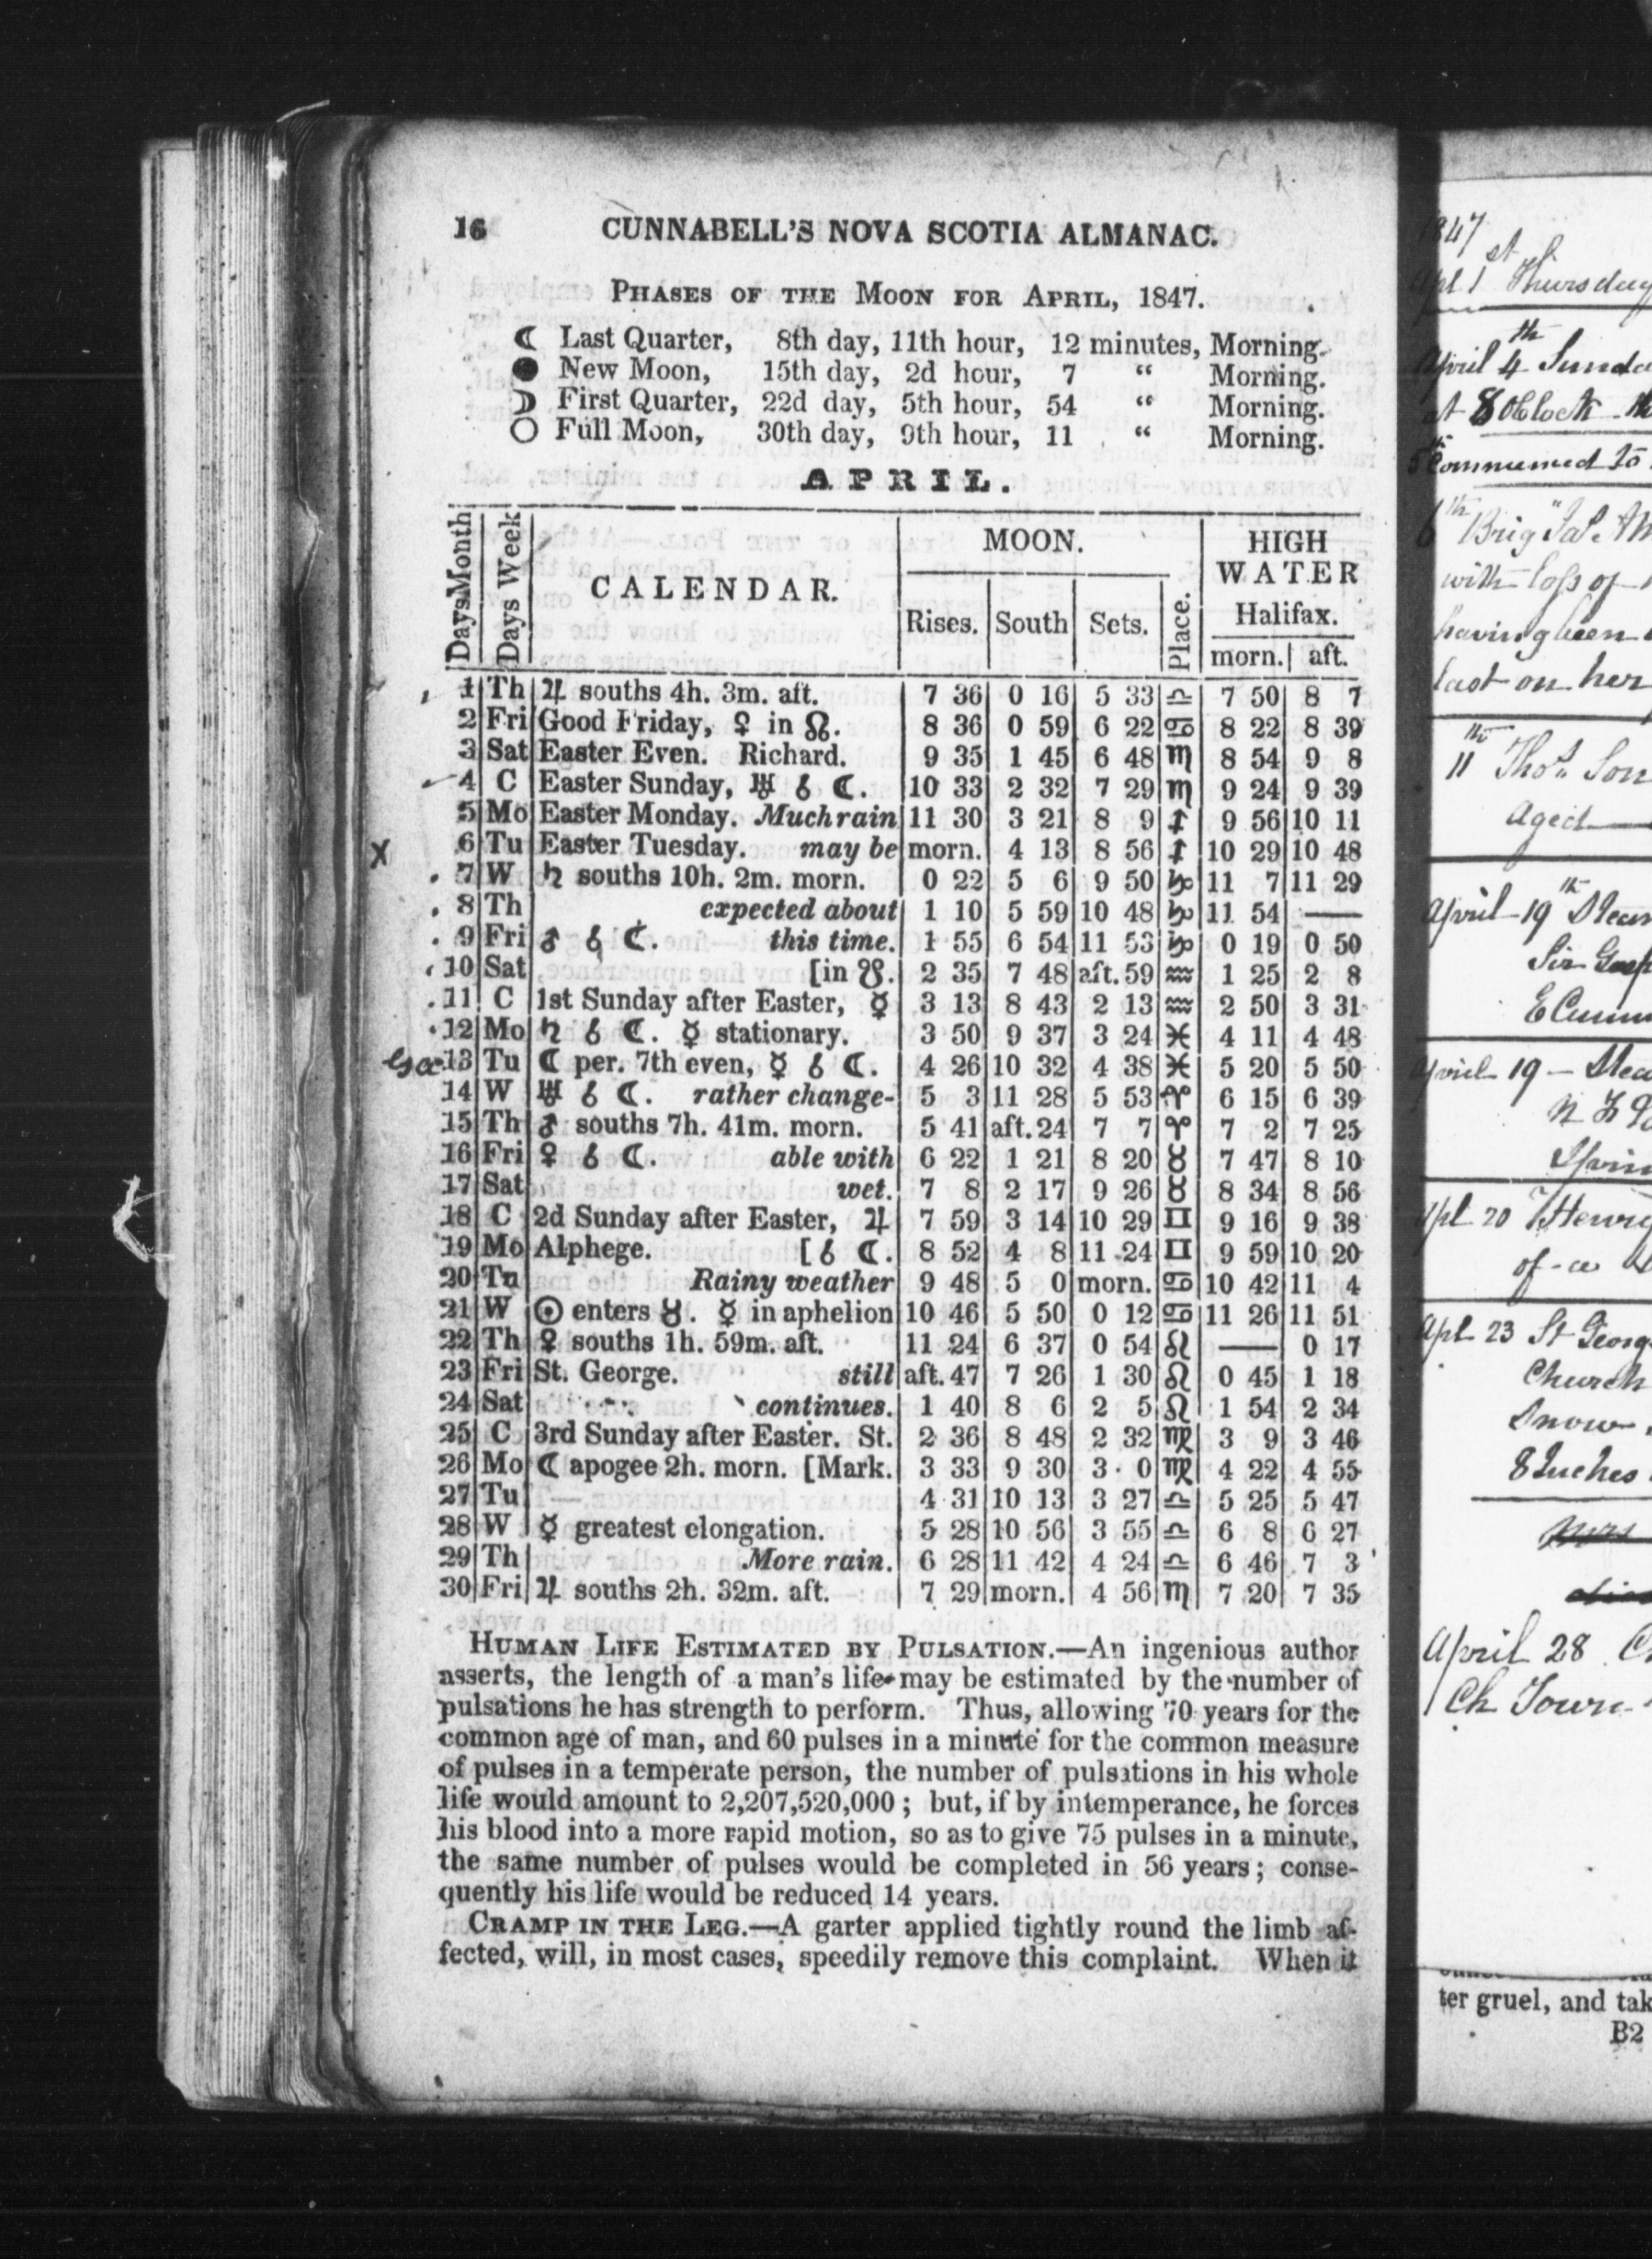 16 CUNNABELL'S NOVA SCOTIA ALMANAC.
PHASES OF THE MOON FOR APRIL, 1847.
☾ Last Quarter, 8th day, 11th hour, 12 minutes, Morning.
● New Moon, 15th day, 2d hour, 7 “ Morning.
☽ First Quarter, 22d day, 5th hour, 54 “ Morning.
○ Full Moon, 30th day, 9th hour, 11 “ Morning.
APRIL.
Days Month Days Week CALENDAR. MOON. HIGH WATER Halifax.
Rises. South Sets. Place. morn. aft.
1 Th ♃ souths 4h. 3m. aft. 7 36 0 16 5 33 ♎ 7 50 8 7
2 Fri Good Friday, ♀ in ☊. 8 36 0 59 6 22 ♋ 8 22 8 39
3 Sat Easter Even. Richard. 9 35 1 45 6 48 ♏ 8 54 9 8
4 C Easter Sunday, ♅ ☌ ☾. 10 33 2 32 7 29 ♏ 9 24 9 39
5 Mo Easter Monday. Much rain 11 30 3 21 8 9 ♐ 9 56 10 11
X 6 Tu Easter Tuesday. may be morn. 4 13 8 56 ♐ 10 29 10 48
7 W ♄ souths 10h. 2m. morn. 0 22 5 6 9 50 ♑ 11 7 11 29
8 Th expected about 1 10 5 59 10 48 ♑ 11 54 —
9 Fri ♂ ☌ ☾. this time. 1 55 6 54 11 53 ♑ 0 19 0 50
10 Sat [in ☋. 2 35 7 48 aft. 59 ♒ 1 25 2 8
11 C 1st Sunday after Easter, ☿ 3 13 8 43 2 13 ♒ 2 50 3 31
12 Mo ♄ ☌ ☾. ☿ stationary. 3 50 9 37 3 24 ♓ 4 11 4 48
13 Tu ☾ per. 7th even, ☿ ☌ ☾. 4 26 10 32 4 38 ♓ 5 20 5 50
14 W ♅ ☌ ☾. rather change- 5 3 11 28 5 53 ♈ 6 15 6 39
15 Th ♂ souths 7h. 41m. morn. 5 41 aft. 24 7 7 ♈ 7 2 7 25
16 Fri ♀ ☌ ☾. able with 6 22 1 21 8 20 ♉ 7 47 8 10
17 Sat wet. 7 8 2 17 9 26 ♉ 8 34 8 56
18 C 2d Sunday after Easter, ♃ 7 59 3 14 10 29 ♊ 9 16 9 38
19 Mo Alphege. [☌ ☾. 8 52 4 8 11 24 ♊ 9 59 10 20
20 Tu Rainy weather 9 48 5 0 morn. ♋ 10 42 11 4
21 W ☉ enters ♉. ☿ in aphelion 10 46 5 50 0 12 ♋ 11 26 11 51
22 Th ♀ souths 1h. 59m. aft. 11 24 6 37 0 54 ♌ — 0 17
23 Fri St. George. still aft. 47 7 26 1 30 ♌ 0 45 1 18
24 Sat continues. 1 40 8 6 2 5 ♌ 1 54 2 34
25 C 3rd Sunday after Easter. St. 2 36 8 48 2 32 ♍ 3 9 3 46
26 Mo ☾ apogee 2h. morn. [Mark. 3 33 9 30 3 0 ♍ 4 22 4 55
27 Tu 4 31 10 13 3 27 ♎ 5 25 5 47
28 W ☿ greatest elongation. 5 28 10 56 3 55 ♎ 6 8 6 27
29 Th More rain. 6 28 11 42 4 24 ♎ 6 46 7 3
30 Fri ♃ souths 2h. 32m. aft. 7 29 morn. 4 56 ♏ 7 20 7 35
HUMAN LIFE ESTIMATED BY PULSATION.—An ingenious author
asserts, the length of a man's life may be estimated by the number of
pulsations he has strength to perform. Thus, allowing 70 years for the
common age of man, and 60 pulses in a minute for the common measure
of pulses in a temperate person, the number of pulsations in his whole
life would amount to 2,207,520,000 ; but, if by intemperance, he forces
his blood into a more rapid motion, so as to give 75 pulses in a minute,
the same number of pulses would be completed in 56 years ; conse-
quently his life would be reduced 14 years.
CRAMP IN THE LEG.—A garter applied tightly round the limb af-
fected, will, in most cases, speedily remove this complaint. When it
1847
Apl 1st Thursday
April 4th
at 8 OClock
Commenced to
6th Brig
with loss of
having been
last on her
11th Thos Son
aged
April 19th
Sir
April 19 —
Apl 20 Henry
of a
Apl 23 St George
Church
Snow
8 Inches
April 28
Ch Town
ter gruel, and tak
B2